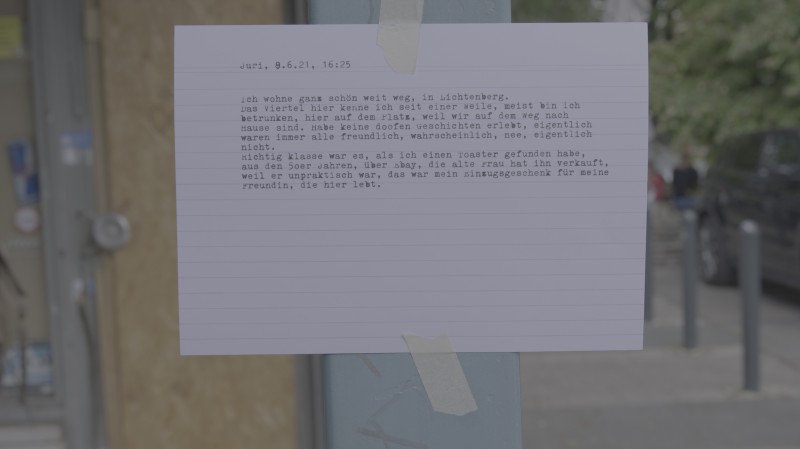 Juri, 8.6.21, 16:25
Ich wohne ganz schön weit weg, in Lichtenberg.
Das Viertel hier kenne ich seit einer Weile, meist bin ich
betrunken, hier auf dem Platz, weil wir auf dem Weg nach
Hause sind. Habe keine doofen Geschichten erlebt, eigentlich
waren immer alle freundlich, wahrscheinlich, nee, eigentlich
nicht.
Richtig klasse war es, als ich einen Toaster gefunden habe,
aus den 50er Jahren, über ebay, die alte Frau hat ihn verkauft,
weil er unpraktisch war, das war mein Einzugsgeschenk für meine
Freundin, die hier lebt.